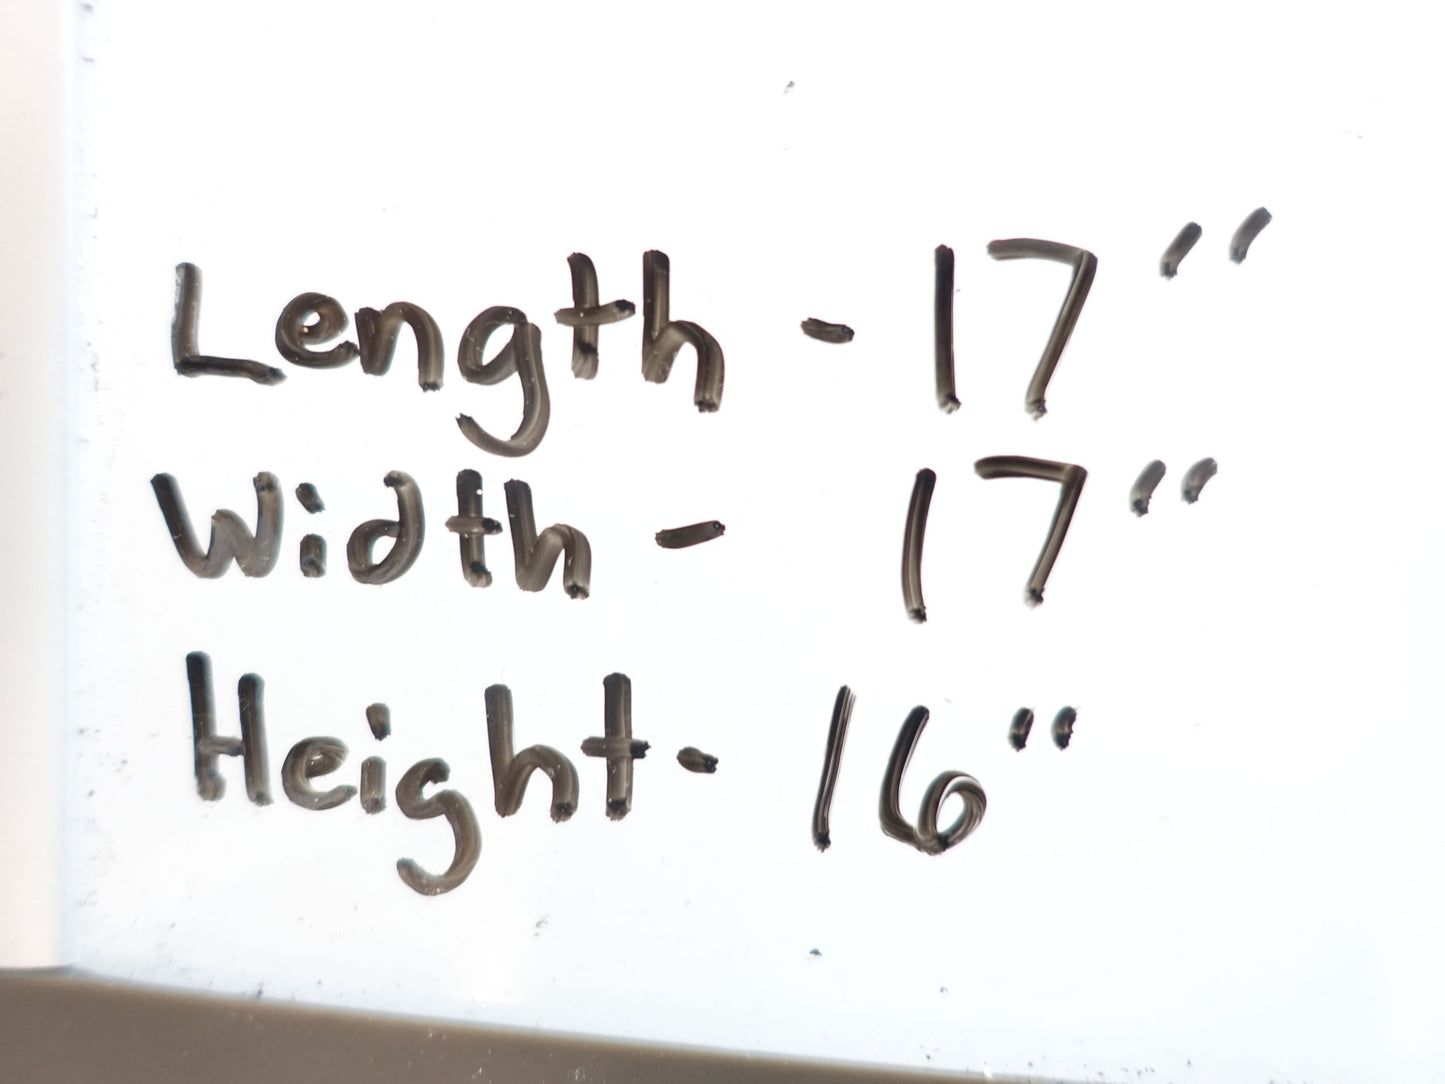 Length - 17''
Width - 17''
Height - 16"